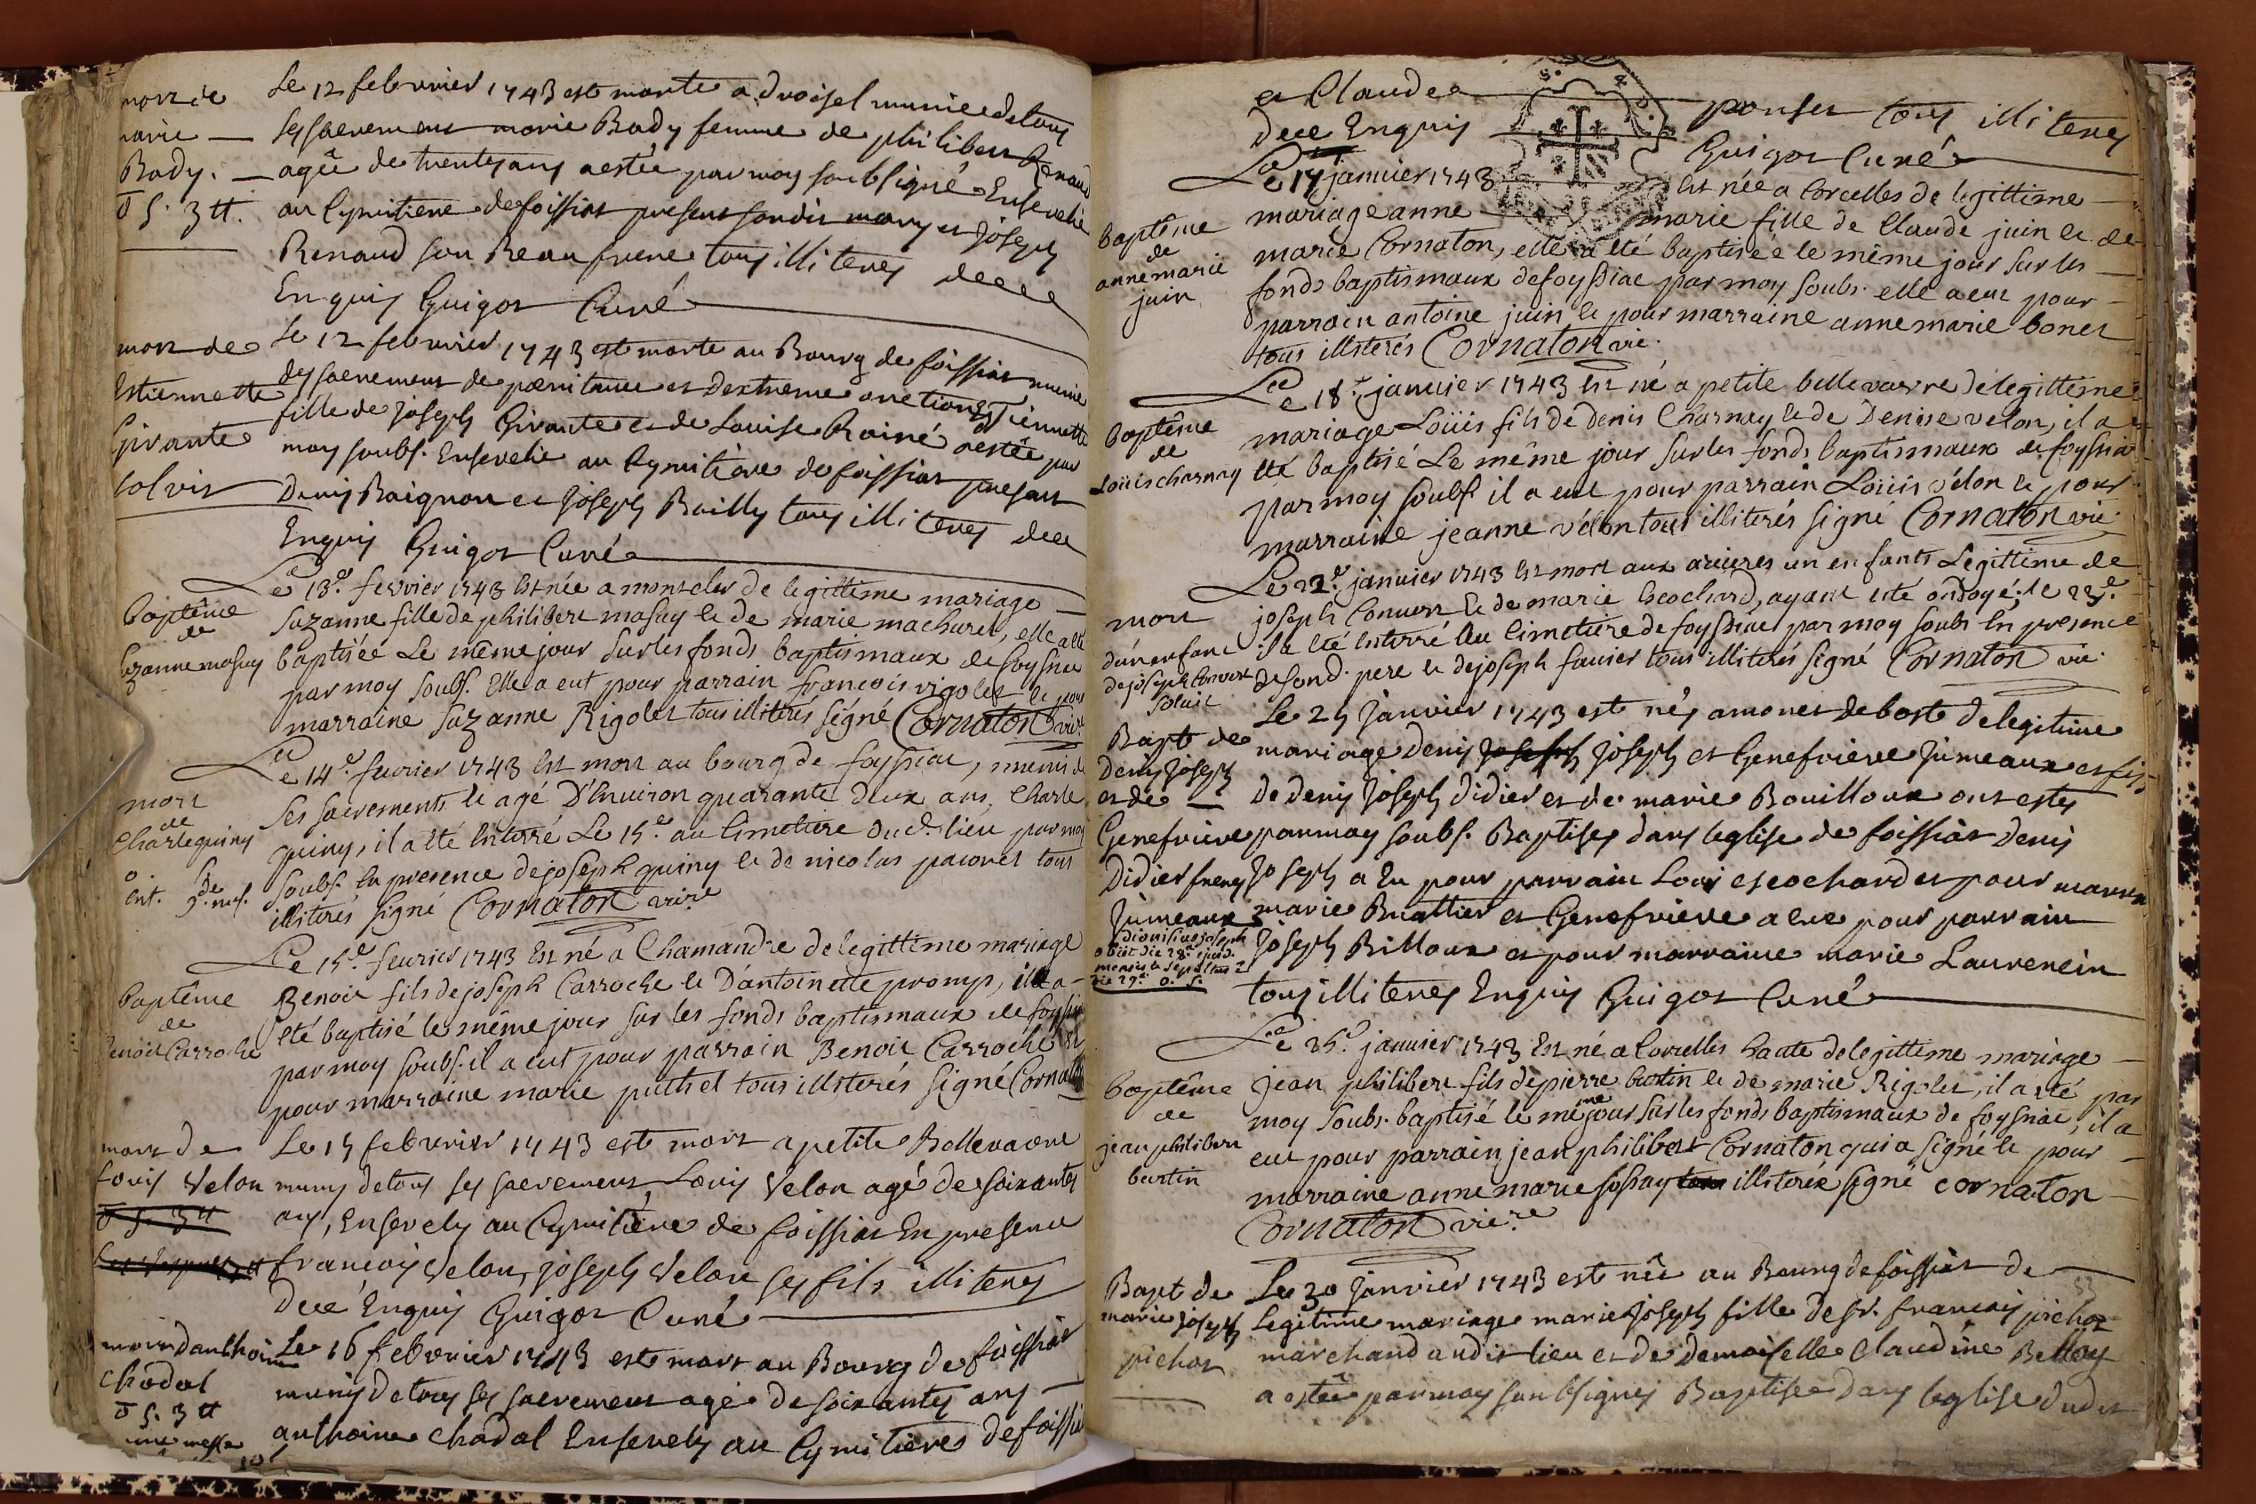 mort de
marie
Bady.
5 s. 3 tt.
Le 12 februrier 1743 est morte a droisel munie de tous
ses sacremens marie Bady femme de philibert Renaud
agée de trente ans a estée par moy soubsigné Ensevelie
au Cymitiere de foissiat present sondit mary et joseph
Renaud son Beaufrere tous illiteres de ce
Enquis Guigot Curé
mort de
Estiennette
Girante
solvit
Le 12 februrier 1743 est morte au Bourg de foissiat munie
des sacremens de poenitence et d'extreme onction Estiennette
fille de joseph Girante et de Louise Rainé a estée par
moy soubs. Ensevelie au Cymitiere de foissiat presant
Denis Raignon et joseph Bailly tous illiteres de ce
Enquis Guigot Curé
baptême
de
suzanne masuy
Le 13e. fevrier 1743 est née a de legittime mariage
Suzanne fille de philibert masuy et de marie machuret, elle a été
baptisée Le même jour sur les fonds baptismaux de foyssiac
par moy soubs. Elle a eut pour parrain francois rigolet et pour
marraine Suzanne Rigolet tous illiterés signé Cornaton vire
mort
de
Charle quiny
o.
ent.
Le 14e. fevrier 1743 est mort au bourg de foyssiac, munis de
ses sacrements et agé D'Environ quarante deux ans, Charle
quiny, il a été Enterré Le 15e au Cimetiere dud. lieu par moy
soubs. En presence de joseph quiny et de nicolas paconet tous
illiterés signé Cornaton vire
baptême
de
Benoit Carroche
Le 15e. fevrier 1743 est né a Chamandre de legittime mariage
Benoit fils de joseph Carroche et D'antoinette promp, il a
été baptisé le même jour sur les fonds baptismaux de foyssiac
par moy soubs. il a eut pour parrain Benoit Carroche et
pour marraine marie puthet tous illiterés signé Cornaton
mort de
Louis Velon
5 s. 3 tt
Le 15 februrier 1743 est mort a petite Bellevavre
muny de tous ses sacremens Louis Velon agé de soixantes
ans, Ensevely au Cymitiere de foissiat En presence
francois Velon, joseph Velon ses fils illiteres
de ce Enquis Guigot Curé
mort danthoine
Chadal
5 s. 3 tt
une messe
Le 16 februrier 1743 est mort au Bourg de foissiat
munis de tous ses sacremens agé de soixantes ans
anthoine Chadal Ensevely au Cymitiere de foissiat
et Claude ponset tous illiteres
de ce Enquis Guigot Curé
baptême
de
anne marie
juin
Le 17 janvier 1743 est née a Corcelles de legittime
mariage anne marie fille de Claude juin et de
marie Cornaton, elle a été baptisée le même jour sur les
fonds baptismaux de foyssiac par moy soubs. elle a eut pour
parrain antoine juin et pour marraine anne marie bonet
tous illiterés Cornaton vic.
baptême
de
Loüis charnay
Le 18e. janvier 1743 est né a petite bellevavre de legittime
mariage Loüis fils de denis Charnay et de Denise velon, il a
été baptisé Le même jour sur les fonds baptismaux de foyssiac
par moy soubs. il a eut pour parrain Loüis vélon et pour
marraine jeanne vélon tous illiterés signé Cornaton vic.
mort
d'un enfant
de joseph Convert
soluit
Le 22e. janvier 1743 est mort aux arieres un enfant Legittime de
joseph Convert et de marie Escochard, ayant esté ondoyé; le 22e.
il a été Enterré Au Cimetiere de foyssiac par moy soubs En presence
de sond. pere et de joseph favier tous illiterés signé Cornaton vic.
Bapt de
Denis Joseph
et de
Genefrieve
Didier freres
Jumeaux
dionisius joseph
obiit die 28a ejusd.
mensis et sepultus
die 29a. o. s.
Le 25 Janvier 1743 est nés a monet de bost de legitime
mariage denis Joseph joseph et Genefrieve jumeaux et fils
de denis Joseph didier et de marie Bouilloux ont estés
par moy soubs. Baptises dans leglise de foissiat denis
Joseph a Eu pour parrain Louis escochard et pour marraine
marie Buattier et Genefrieve a eue pour parrain
joseph Billoux et pour marraine marie Laurencin
tous illiteres Enquis Guigot Curé
baptême
de
jean philibert
bertin
Le 25e. janvier 1743 est né a Corcelles haute de legittime mariage
jean philibert fils de pierre bertin et de marie Rigolet, il a été par
moy soubs. baptisé le même jour sur les fonds baptismaux de foyssiac, il a
eut pour parrain jean philibert Cornaton qui a signé et pour
marraine anne marie sossay tous illiterée signé cornaton
Cornaton vicre
Bapt de
marie joseph
pichot
Le 30 janvier 1743 est née au Bourg de foissiat de
legitime mariage marie joseph fille de sr. francois pichot
marchand audit lieu et de demoiselle Claudine Belloy
a estée par moy soubsignés Baptisée dans leglise dudit
53